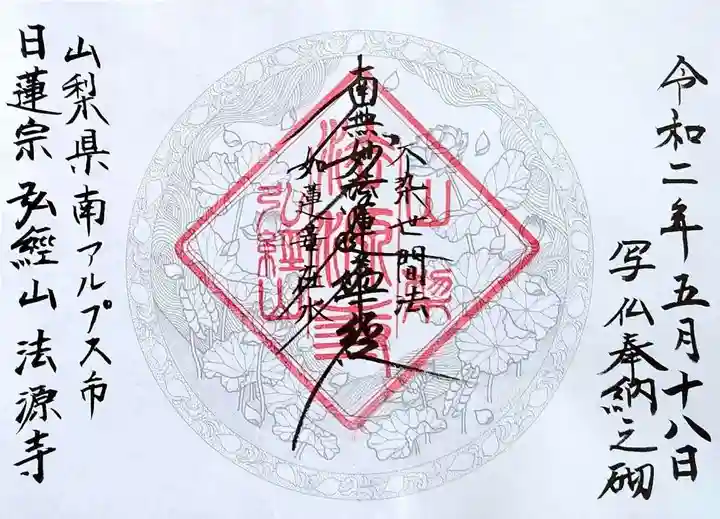 令和二年五月十八日
写仏奉納之砌
不染世間法
南無妙法蓮華経
如蓮華在水
山梨県南アルプス市
日蓮宗 弘經山 法源寺